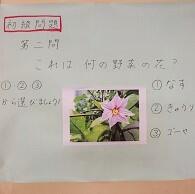 初級問題
第二問
これは何の野菜の花？
①②③
から選びましょう！
① なす
② きゅうり
③ ゴーヤ